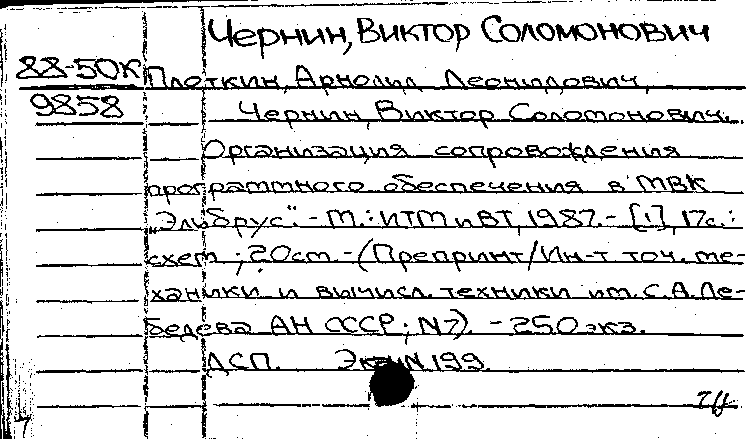 Чернин, Виктор Соломонович
88-50К Плоткин, Арнольд Леонидович,
9858 Чернин, Виктор Соломонович.
Организация сопровождения
программного обеспечения в МВК
"Эльбрус". - М.: ИТМ и ВТ, 1987. - [1], 17с.:
схем.; 20см. - (Препринт/Ин-т точ. ме-
ханики и вычисл. техники им. С.А.Ле-
бедева АН СССР; N7). - 250 экз.
ДСП. Экз. N 199.